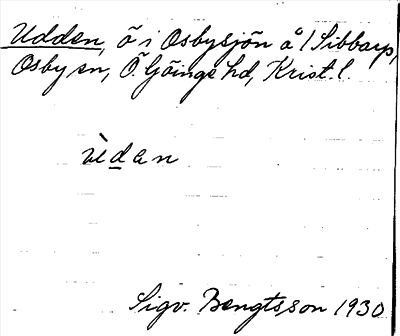 Udden, ö i Osbysjön å 1 Sibbarp,
Osby sn, Ö. Göinge hd, Krist. l.
Sigv. Bengtsson 1930